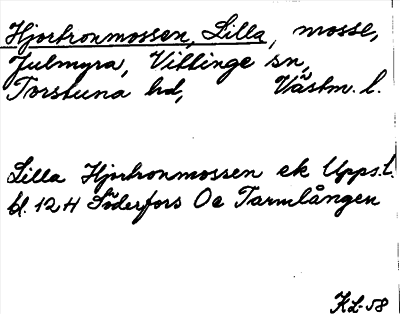 Hjortronmossen, Lilla, mosse,
Julmyra, Vittinge sn,
Torstuna hd, Västm. l.
Lilla Hjortronmossen ek Upps. l.
bl. 12 H Söderfors Oe Tarmlången
KL-58